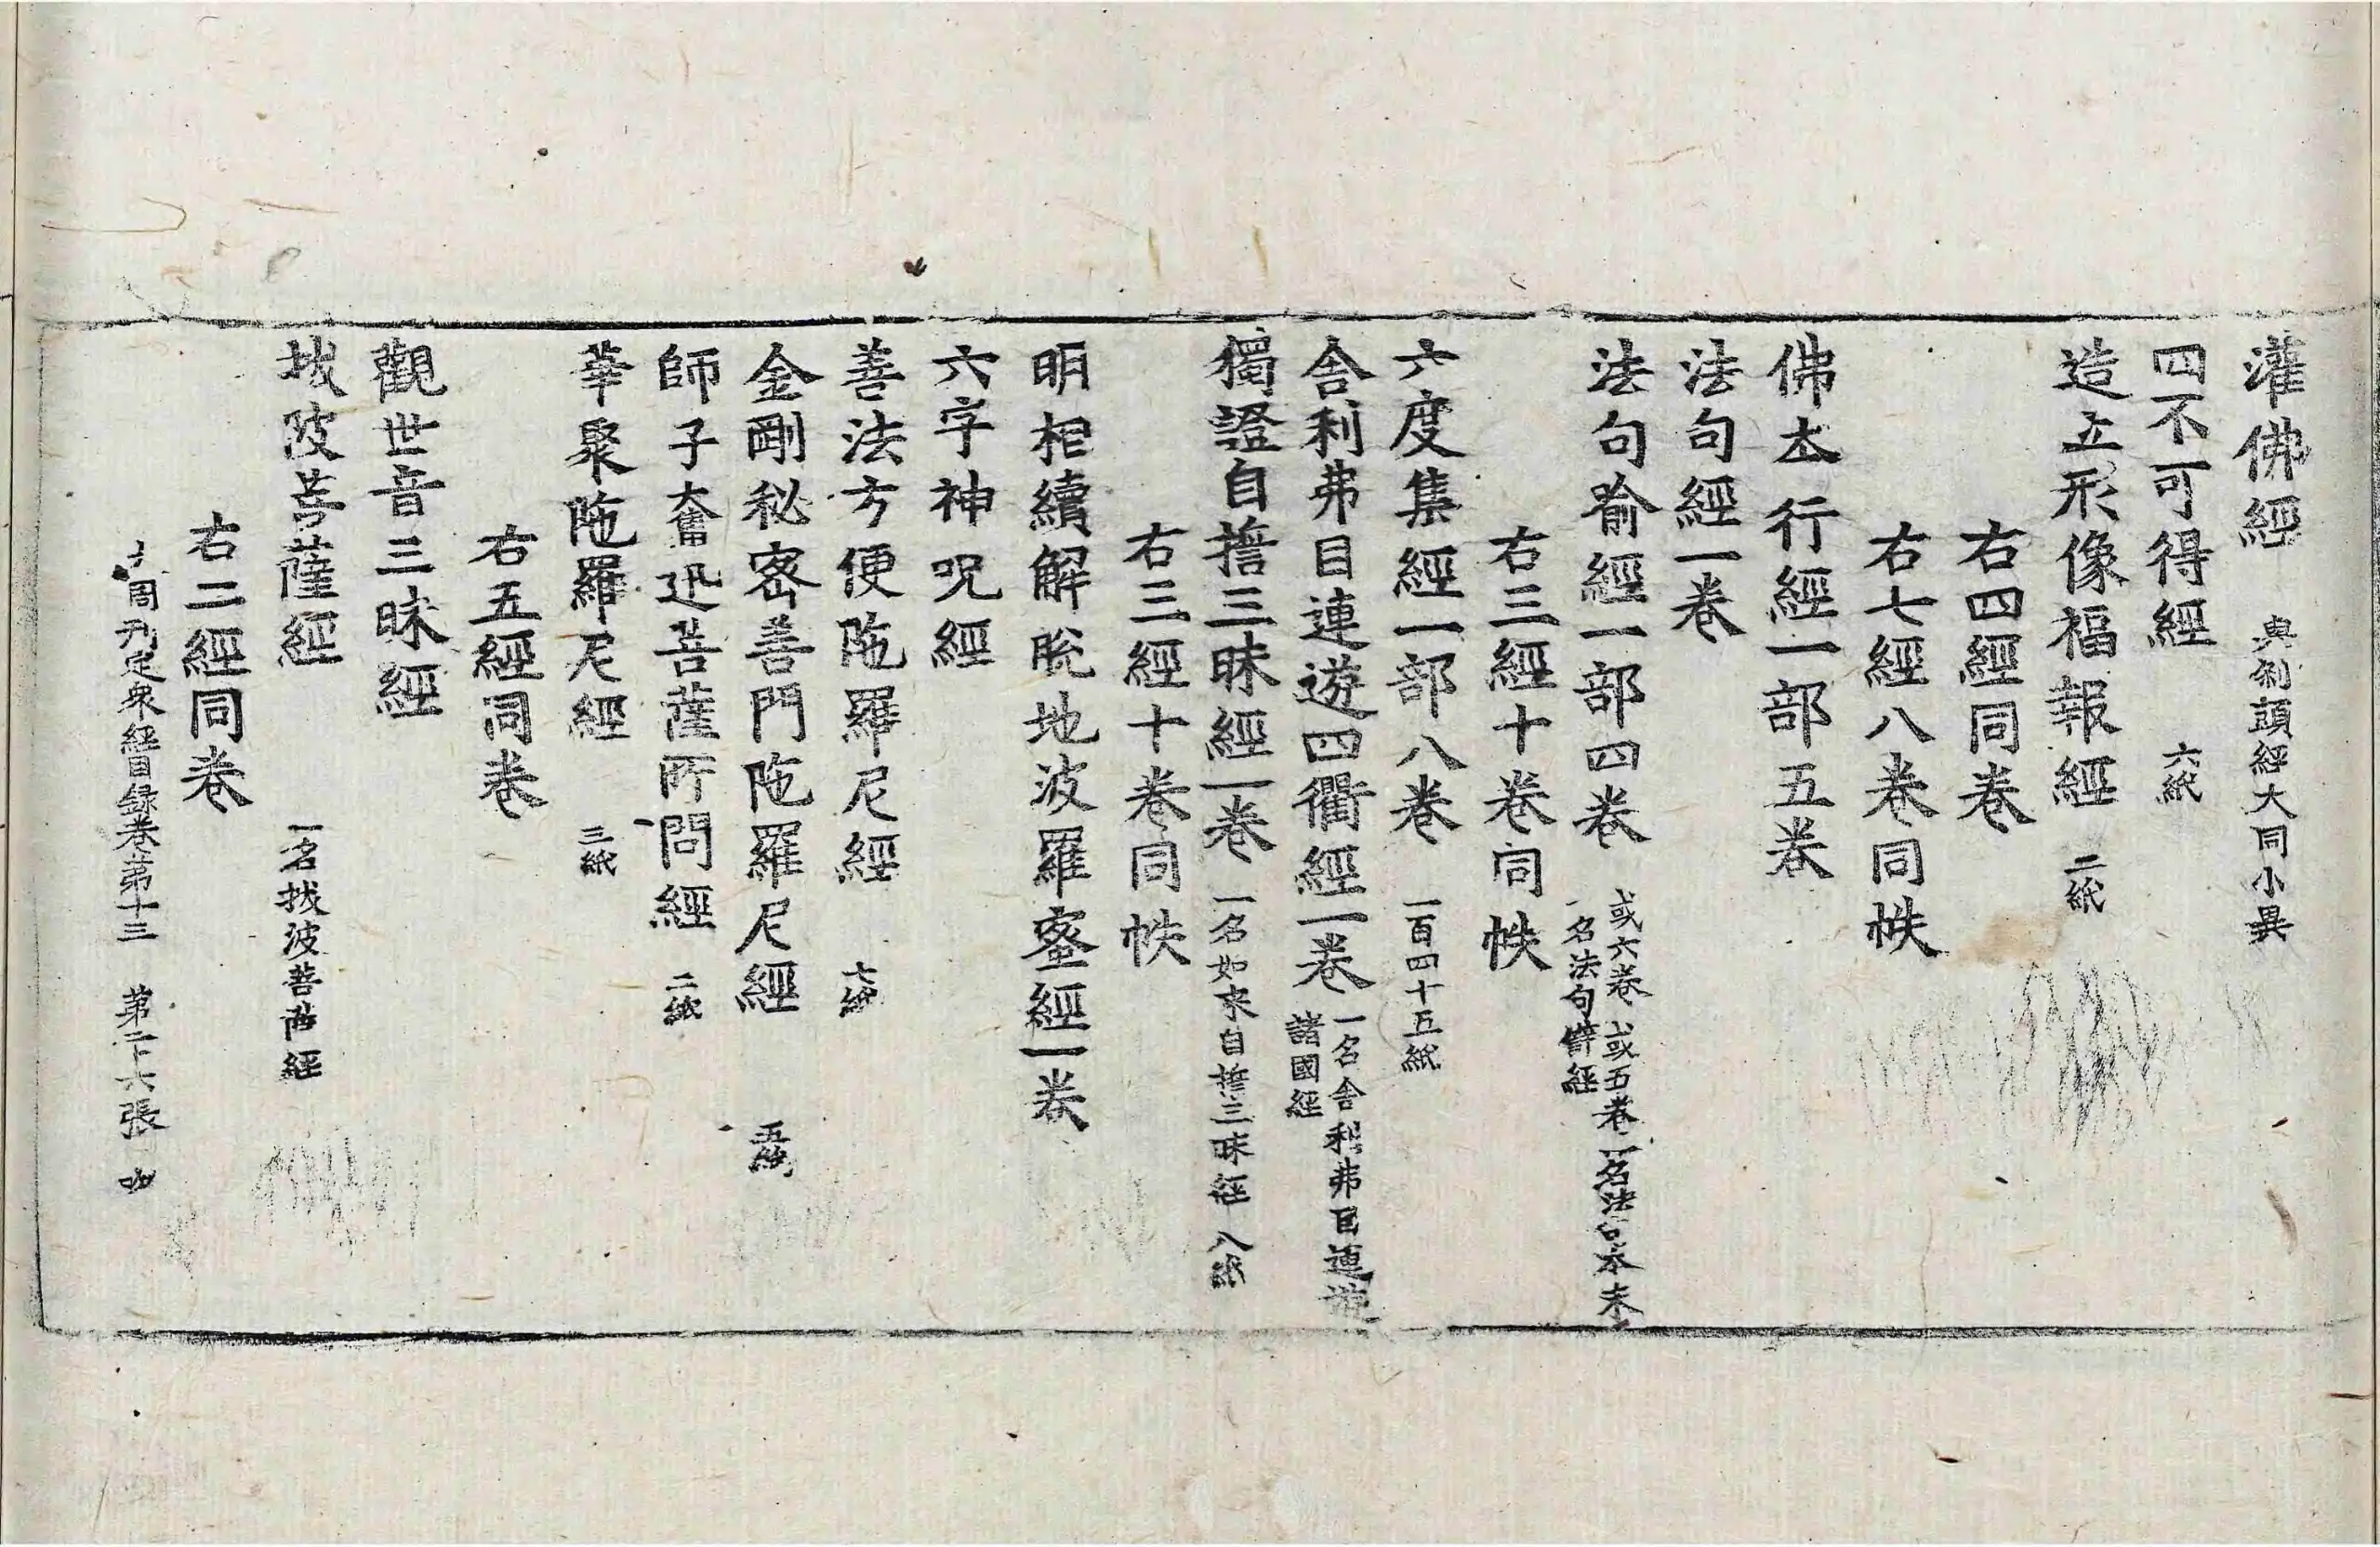 灌佛經 與刹頭經大同小異
四不可得經 六紙
造立形像福報經 二紙
右四經同卷
右七經八卷同帙
佛本行經一部五卷
法句經一卷
法句喻經一部四卷 或六卷 或五卷 一名法句本末 一名法句譬經
右三經十卷同帙
六度集經一部八卷 一百四十五紙
舍利弗目連遊四衢經一卷 一名舍利弗目連遊 諸國經
獨證自擔三昧經一卷 一名如來自誓三昧經 八紙
右三經十卷同帙
明相續解脫地波羅蜜經一卷
六字神呪經
善法方便陁羅尼經 七紙
金剛秘密善門陁羅尼經 五紙
師子奮迅菩薩所問經 二紙
華聚陁羅尼經 三紙
右五經同卷
觀世音三昧經
拔陂菩薩經 一名拔波菩薩經
右二經同卷
大周刊定衆經目録卷第十三 第二十六張